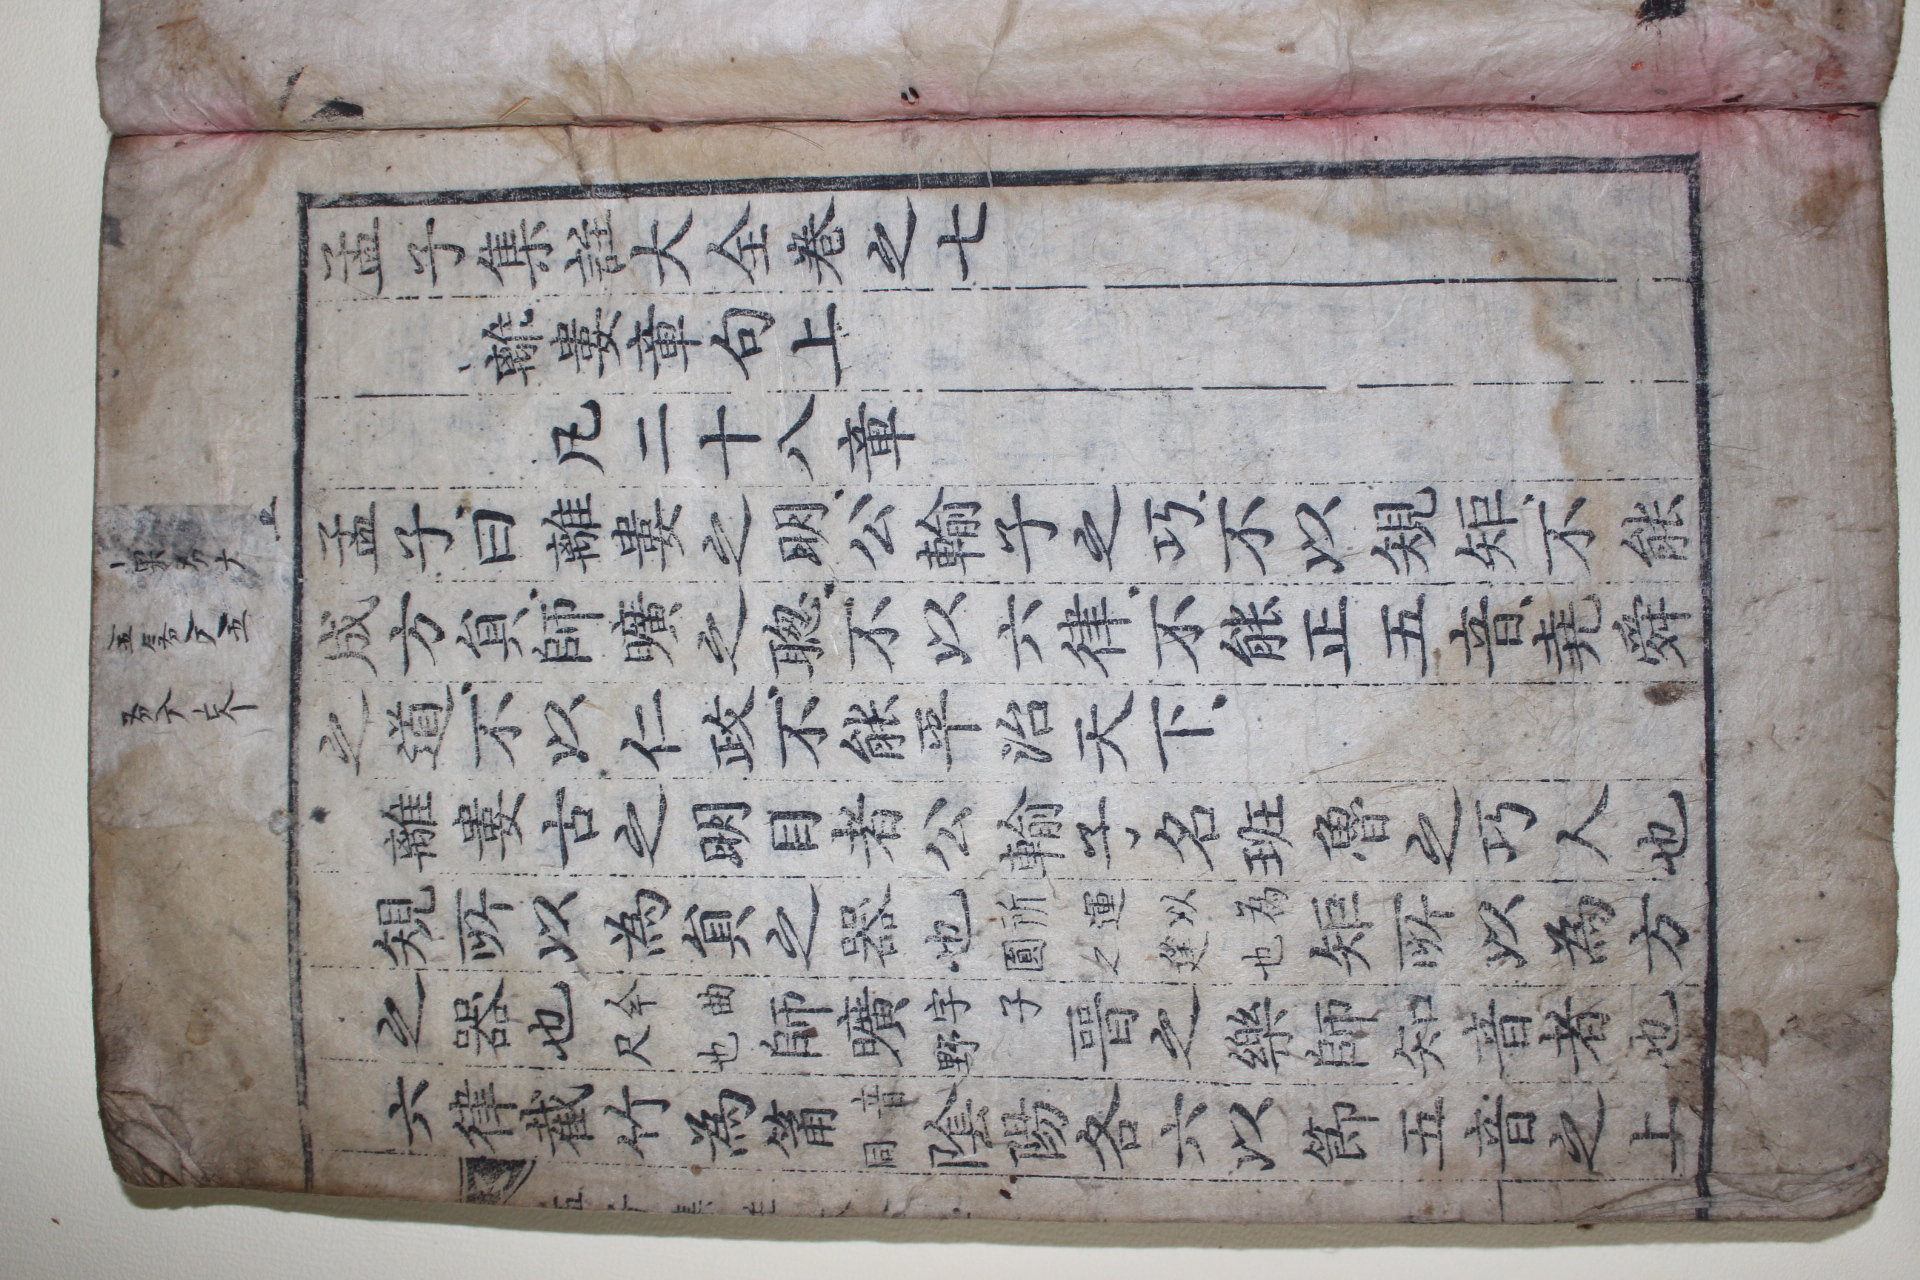 孟子集註大全卷之七
離婁章句上
凡二十八章
孟子曰離婁之明公輸子之巧不以䂓矩不能
成方貟師曠之聰不以六律不能正五音堯舜
之道不以仁政不能平治天下
離婁古之明目者公輸子名班魯之巧人也
䂓所以為貟之器也所運以為圓之筳也矩所以為方
之器也今曲尺也師曠字子野晉之樂師知音者也
六律截竹為筩音同陰陽各六以節五音之上